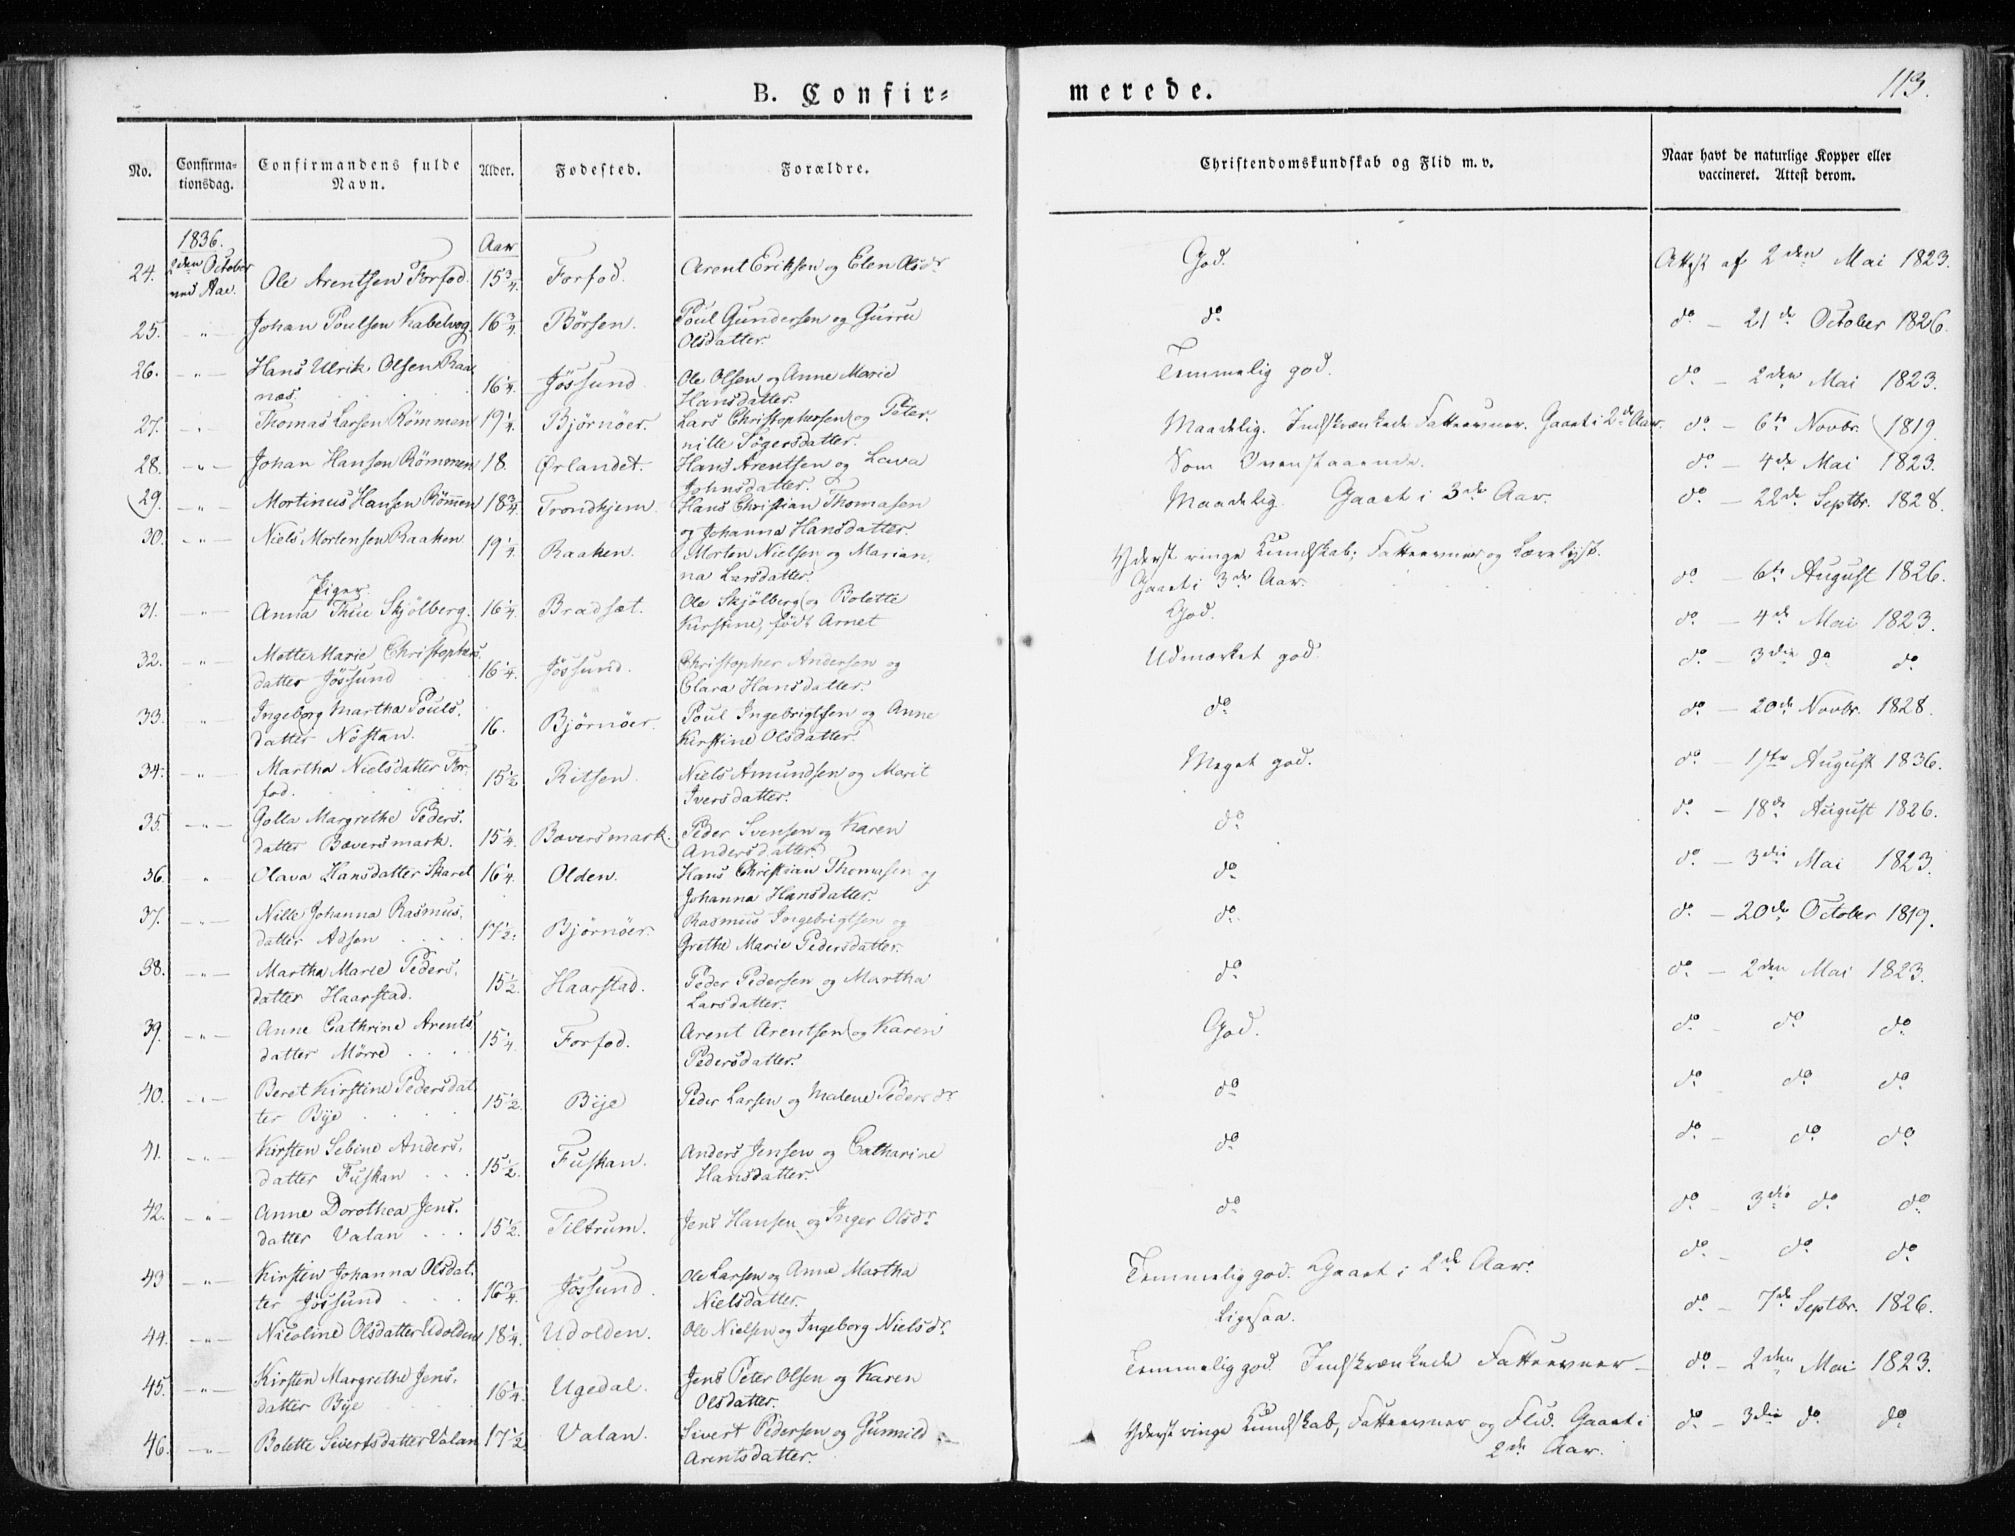 B. Confir-
merede.
113.
No.
Confirma-
tionsdag.
Confirmandens fulde
Navn.
Alder.
Fødested.
Forældre.
Christendomskundskab og Flid m. v.
Naar havt de naturlige Kopper eller
vaccineret. Attest derom.
1836. Aar
24. 2den October Ole Arentsen Forfod. 15¾ Forfod. Arent Eriksen og Elen Olsdr God. Attest af 2den Mai 1823.
ved Aae.
25. -"- Johan Poulsen Kabelvog. 16¾ Børsen. Poul Gundersen og Gurru do do - 21de October 1826.
Olsdatter.
26. -"- Hans Ulrik Olsen Raa- 16¼ Jössund. Ole Olsen og Anne Marie Temmelig god. do - 2den Mai 1823.
næs. Hansdatter.
27. -"- Thomas Larsen Römmen 19¼ Bjørnöer. Lars Christophersen og Peter- Maadelig. Indskrænkede Fatteevner. Gaaet i 2det Aar. do - 6te Novbr. 1819.
nille Sögersdatter.
28. -"- Johan Hansen Römmen 18. Ørlandet. Hans Arentsen og Lava Som Ovenstaaende. do - 4de Mai 1823.
Johnsdatter.
29. -"- Mortinus Hansen Römen 18¾ Trondhjem. Hans Christian Thomasen Maadelig. Gaaet i 3de Aar. do - 22de Septbr. 1828.
og Johanna Hansdatter.
30. -"- Niels Mortensen Raaken 19¼ Raaken. Morten Nielsen og Marian- Yderst ringe Kundskab; Fatteevner og Lærelyst. do - 6te August 1826.
na Larsdatter. Gaaet i 3de Aar.
Piger.
31. " Anna Thue Skjölberg. 16¼ Bradsæt. Ole Skjölberg og Bolette God. do - 4de Mai 1823.
Kirstine, född Arnet
32. -"- Mette Marie Christophers- 16¼ Jössund. Christopher Andersen og Udmærket god. do - 3die do do
datter Jössund Clara Hansdatter.
33. " Ingeborg Martha Pouls- 16. Bjørnöer. Poul Ingebrigtsen og Anne do do - 20de Novbr. 1828.
datter Nöstan. Kirstine Olsdatter.
34. -"- Martha Nielsdatter For- 15½ Ritsen. Niels Amundsen og Marit Meget god. do - 17de August 1836.
fod. Iversdatter.
35. -"- Golla Margrethe Peders- 15¼ Bæversmark. Peder Svensen og Karen do do - 18de August 1826.
datter Bæversmark. Andersdatter.
36. " Olava Hansdatter Skaret 16¼ Olden. Hans Christian Thomasen og do do - 3die Mai 1823.
Johanna Hansdatter.
37. -"- Nille Johanna Rasmus- 17½ Bjørnöer. Rasmus Ingebrigtsen og do do - 20de October 1819.
datter Adsen Grethe Marie Pedersdatter.
38. -"- Martha Marie Peders- 15½ Haarstad. Peder Pedersen og Martha do do - 2den Mai 1823.
datter Haarstad. Larsdatter.
39. -"- Anne Cathrine Arents- 15¼ Forfod. Arent Arentsen og Karen God. do - do do
datter Mörre Pedersdatter.
40. -"- Beret Kirstine Pedersdat- 15½ Bye Peder Larsen og Malene Pedersdr do do - do do
ter Bye
41. -"- Kirsten Sebine Anders- 15½ Fuskan. Anders Jensen og Catharine do do - do do
datter Fuskan Hansdatter.
42. -"- Anne Dorothea Jens- 15½ Tiltrum. Jens Hansen og Inger Olsdr do do - 3die do do
datter Valan
43 -"- Kirsten Johanna Olsdat- 16¾ Jössund. Ole Larsen og Anne Martha Temmelig god. Gaaet i 2de Aar. do - do do
ter Jössund Nielsdatter.
44. -"- Nicoline Olsdatter Udolden 18¼ Udolden. Ole Nielsen og Ingeborg Nielsdr Ligesaa. do - 7de Septbr. 1826.
45. -"- Kirsten Margrethe Jens- 16¼ Ugedal. Jens Peter Olsen og Karen Temmelig god. Indskrænkede Fatteevner - do - 2den Mai 1823.
datter Bye Olsdatter.
46. -"- Bolette Sivertsdatter Valan 17½ Valan. Sivert Pedersen og Gunnild Yderst ringe Kundskab, Fatteevner og Flid. Gaaet i do - 3die do do
Arentsdatter. 2de Aar.